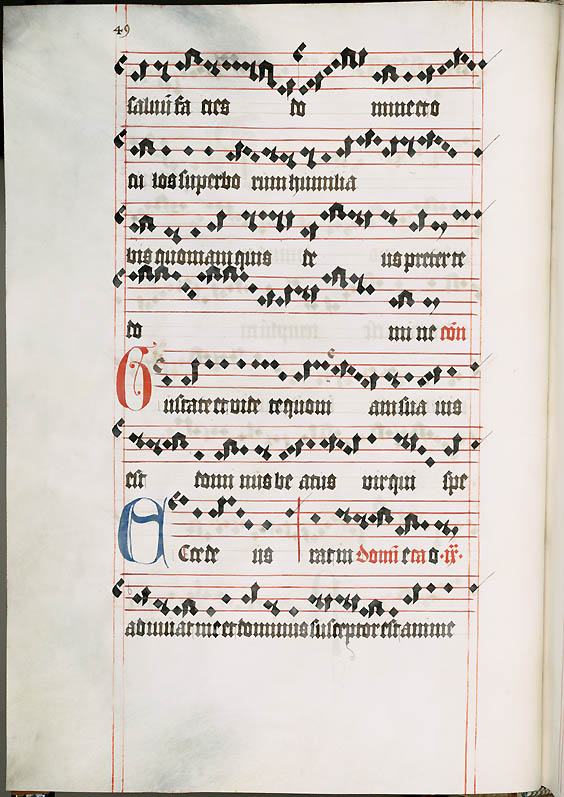 49
saluū fa cies do mine et o
cu los superbo rum humilia
bis quoniam quis de us preter te
do mi ne Cōn
Gustate et vide te quoni am sua uis
est domi nus be atus vir qui spe
Ecce de us rat in Domīc eta o ·ix·
adiuuat me et dominus susceptor est anime